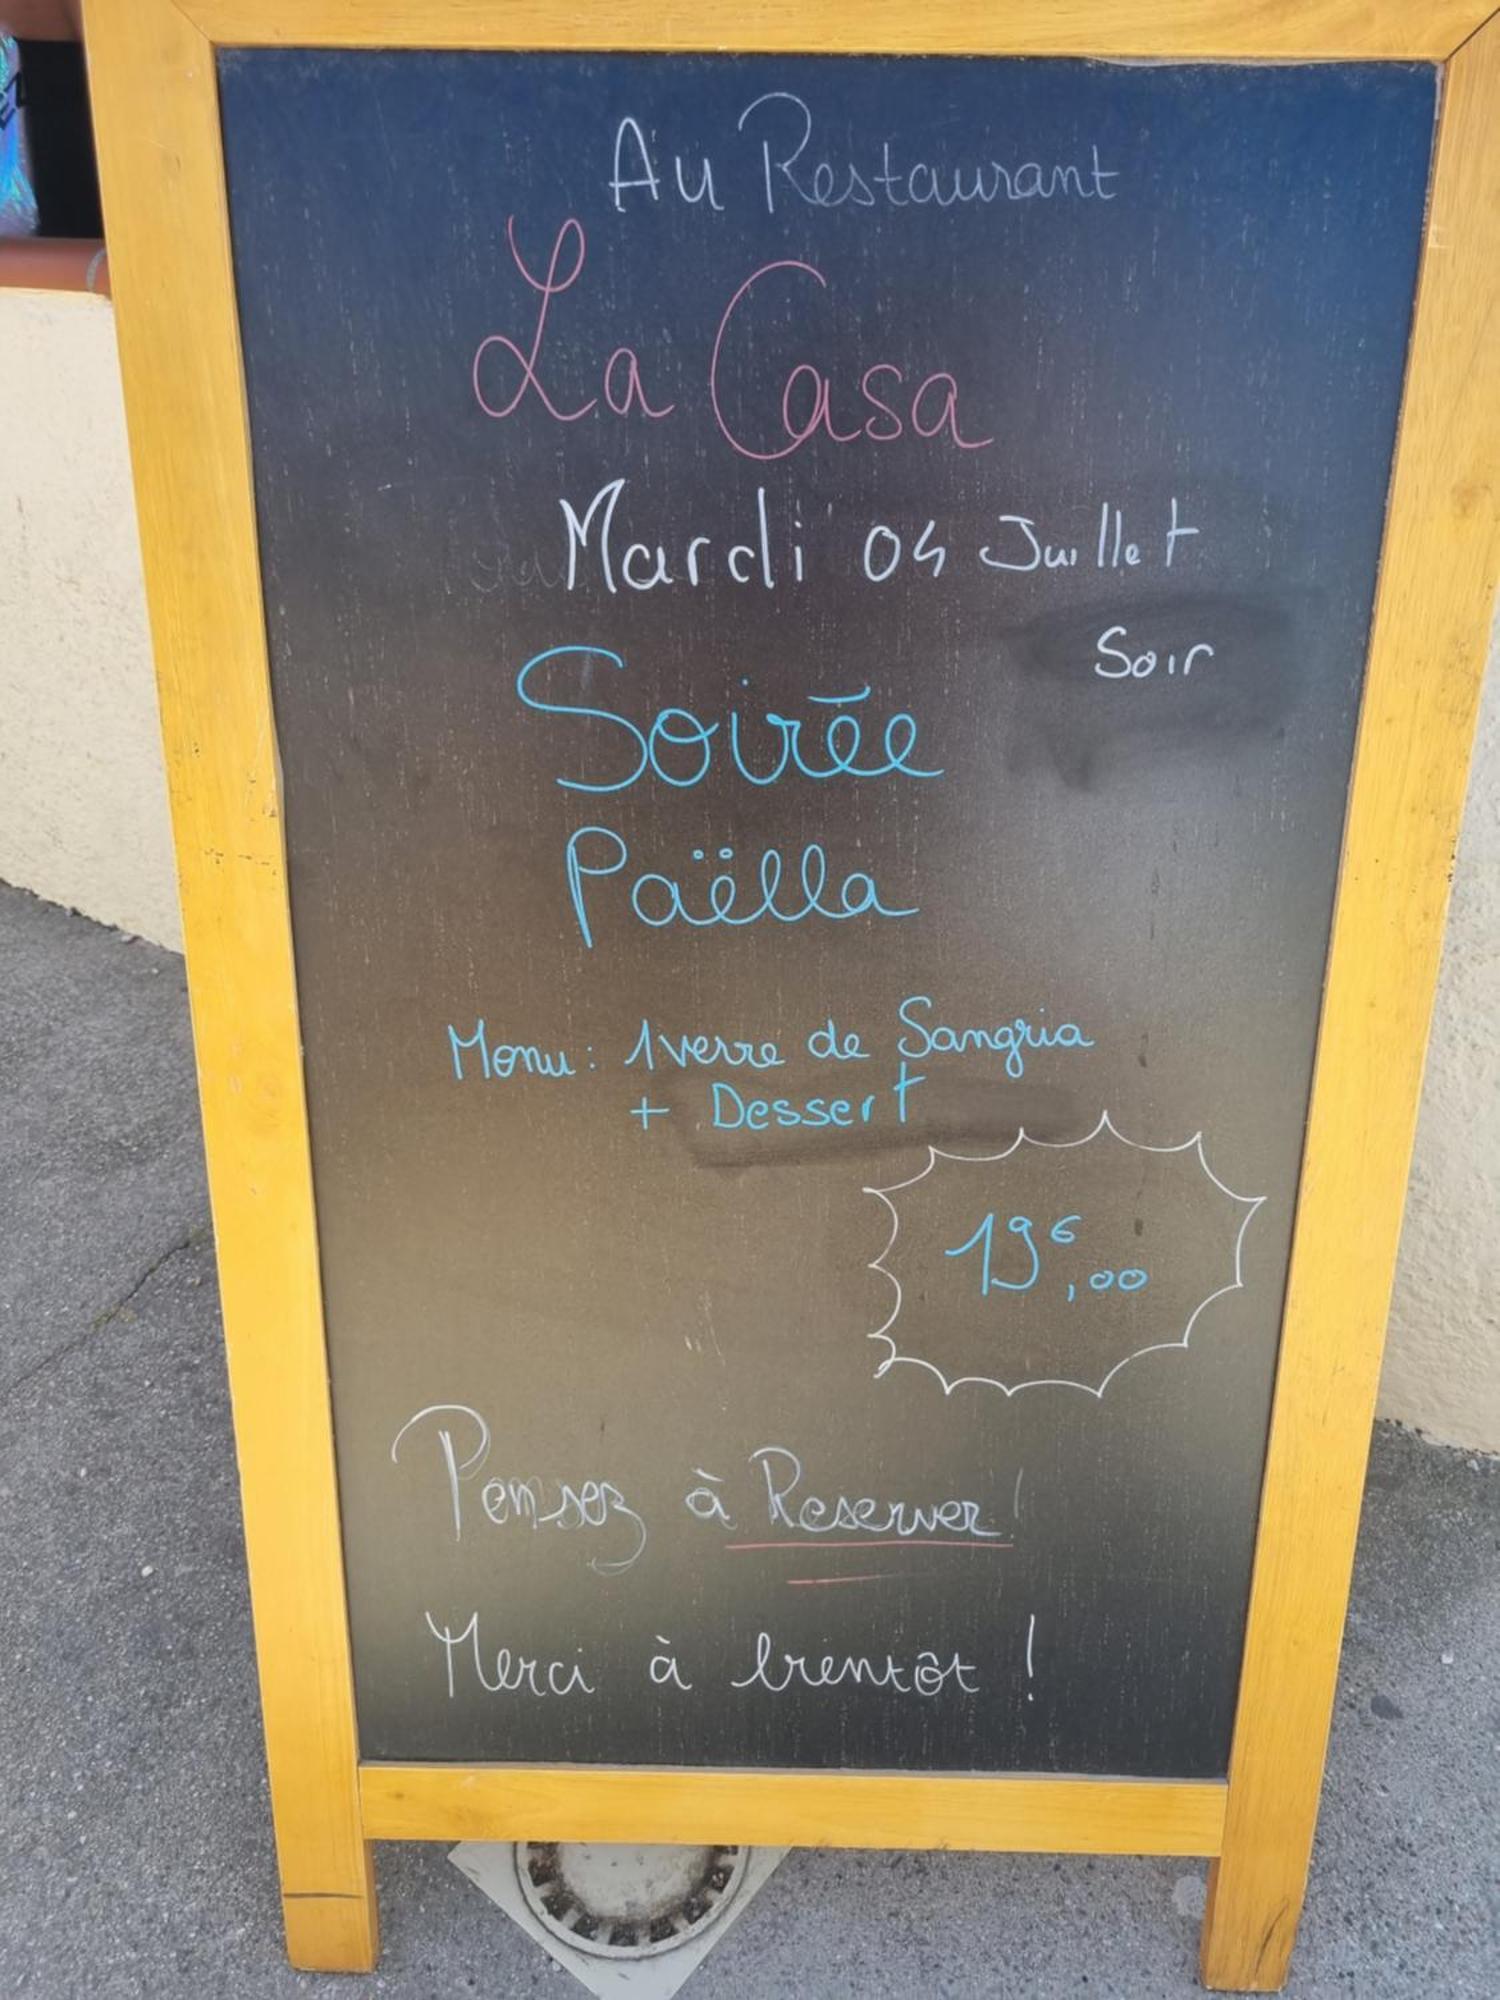 Au Restaurant
La Casa
Mardi 04 Juillet
Soir
Soirée
Paëlla
Menu: 1 verre de Sangria
+ Dessert
19€,00
Pensez à Reserver!
Merci à bientôt !